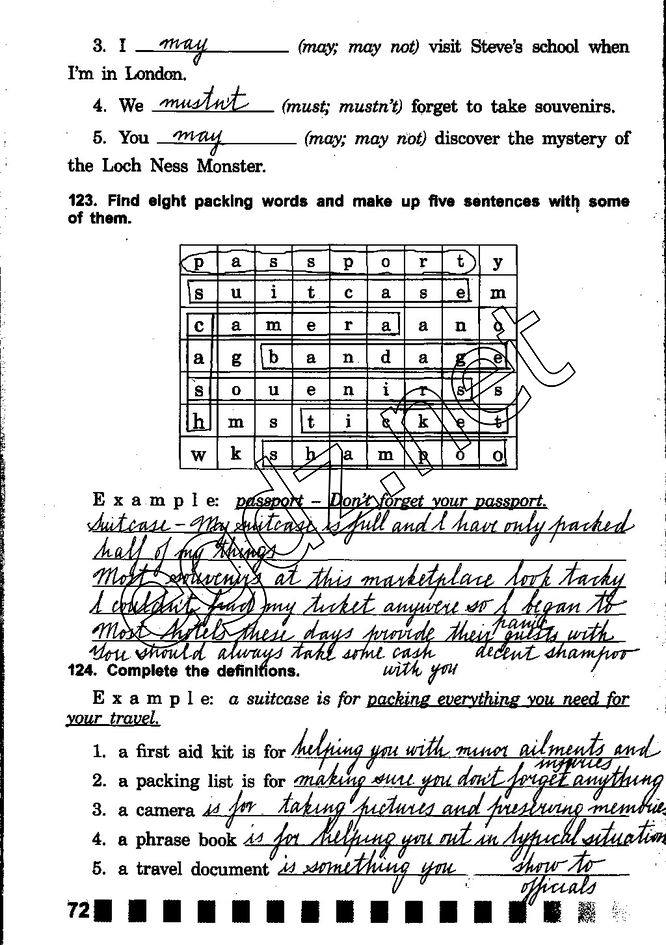 3. I may (may; may not) visit Steve's school when
I'm in London.
4. We mustn't (must; mustn't) forget to take souvenirs.
5. You may (may; may not) discover the mystery of
the Loch Ness Monster.
123. Find eight packing words and make up five sentences with some
of them.
p a s s p o r t y
s u i t c a s e m
c a m e r a a n o
a g b a n d a g e
s o u e n i r s s
h m s t i c k e t
w k s h a m p o o
Example: passport – Don't forget your passport.
Suitcase – My suitcase is full and I have only packed
half of my things
Most souvenirs at this marketplace look tacky
I couldn't find my ticket anywere so I began to
panic
Most hotels these days provide their guests with
You should always take some cash decent shampoo
124. Complete the definitions. with you
Example: a suitcase is for packing everything you need for
your travel.
1. a first aid kit is for helping you with minor ailments and
injuries
2. a packing list is for making sure you don't forget anything
3. a camera is for taking pictures and preserving memories
4. a phrase book is for helping you out in typical situation
5. a travel document is something you show to
officials
72
gdz.net